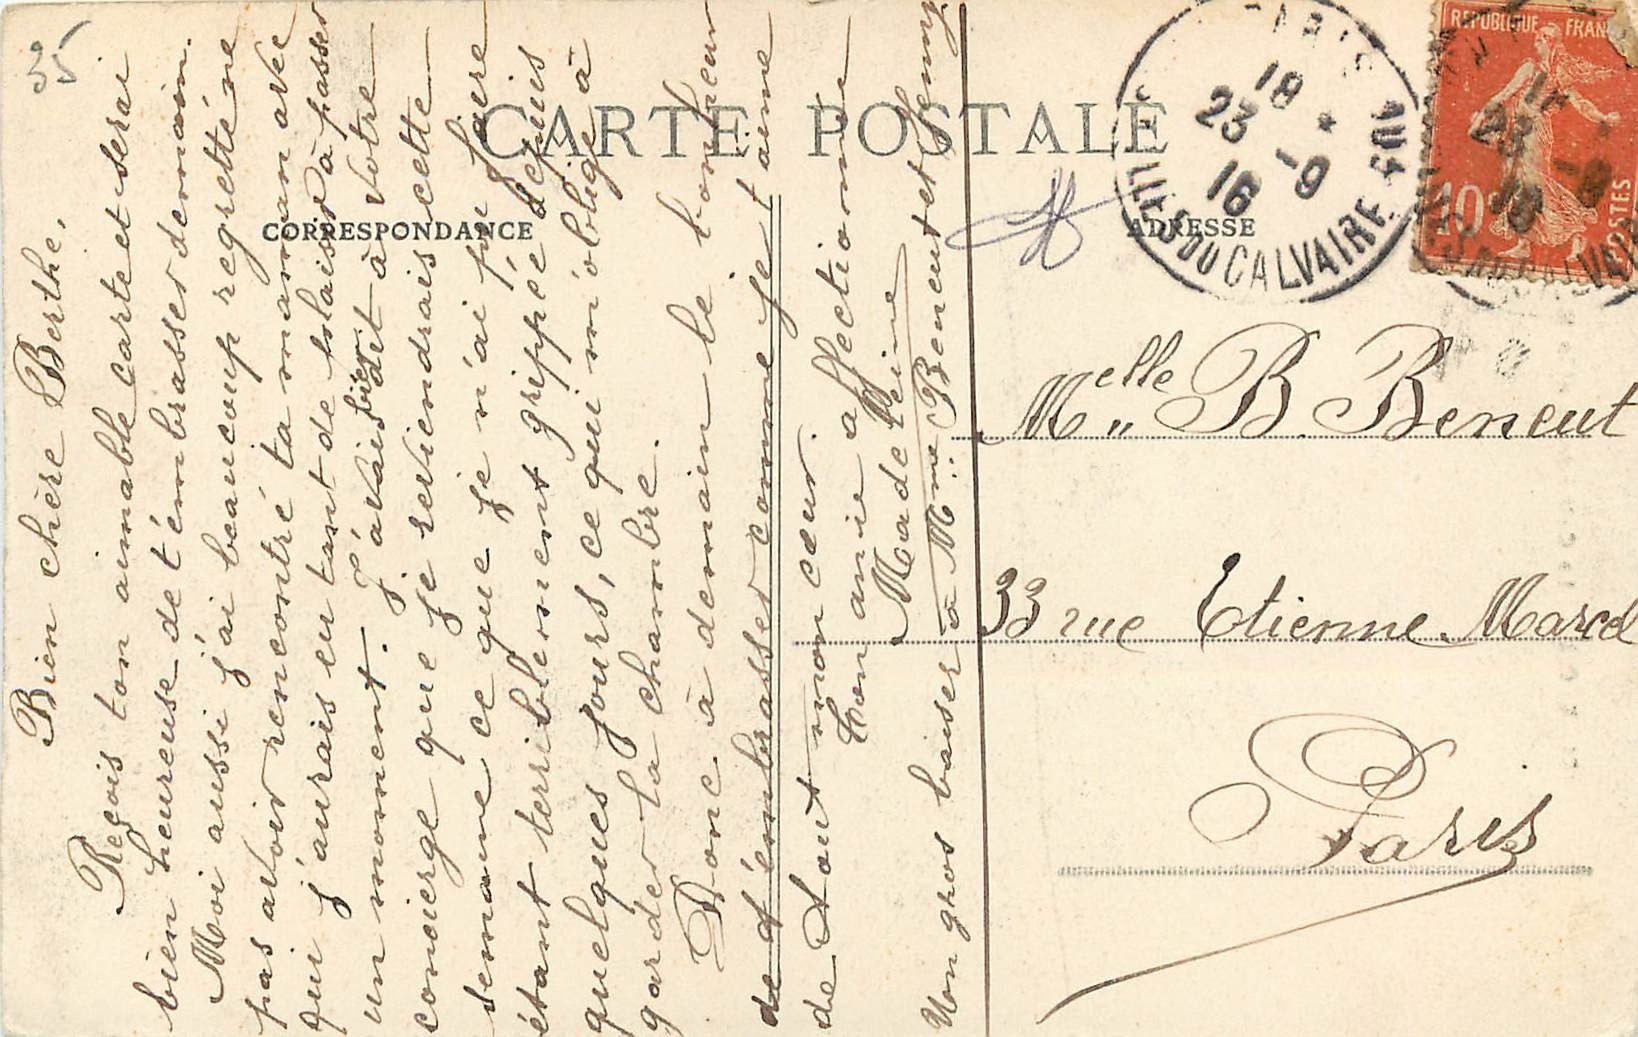 35
CARTE POSTALE
CORRESPONDANCE
ADRESSE
Bien chère Berthe,
Reçois ton aimable carte et serai
bien heureuse de t'embrasser demain.
Moi aussi j'ai beaucoup regretté ne
pas avoir rencontré ta maman avec
qui j'aurais eu tant de plaisir à passer
un moment. J'avais bien dit à votre
concierge que je reviendrais cette
semaine ce que je n'ai pu faire
étant terriblement grippée depuis
quelques jours, ce qui m'oblige à
garder la chambre.
Donc à demain le bonheur
de t'embrasser comme je t'aime
de tout mon cœur.
Ton amie affectionnée
Madeleine
Un gros baiser à Mme Beneut et Jenny
PARIS
18 *
23 -9
16
FILLES DU CALVAIRE
REPUBLIQUE FRANC
10
POSTES
18
23 -9
16
CALVAIRE
Melle B. Beneut
33 rue Etienne Marcel
Paris